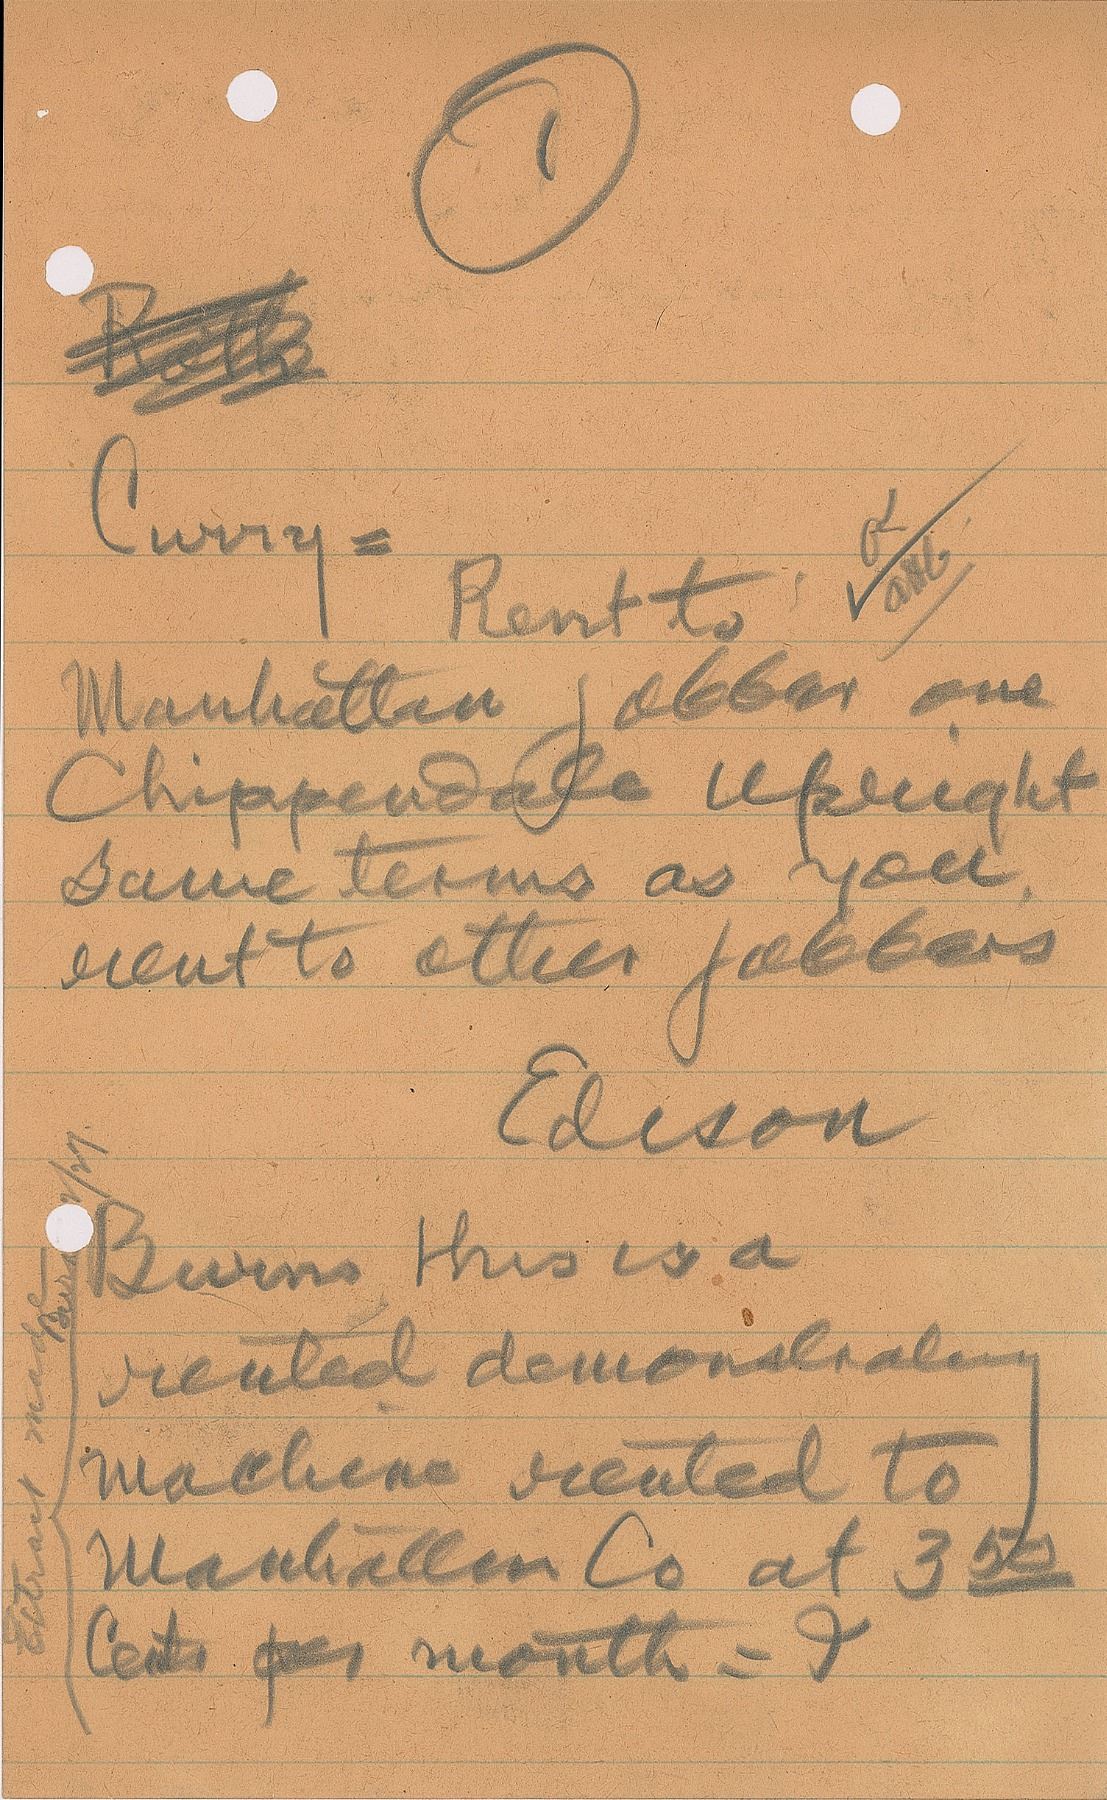 1
Curry =
Rent to
Manhattan jobber one
Chippendale Upright
Same terms as you
rent to other jobbers
Edison
Burns this is a
rented demonstrating
machine rented to
Manhattan Co at 3 50
Cents per month = I
Extract made